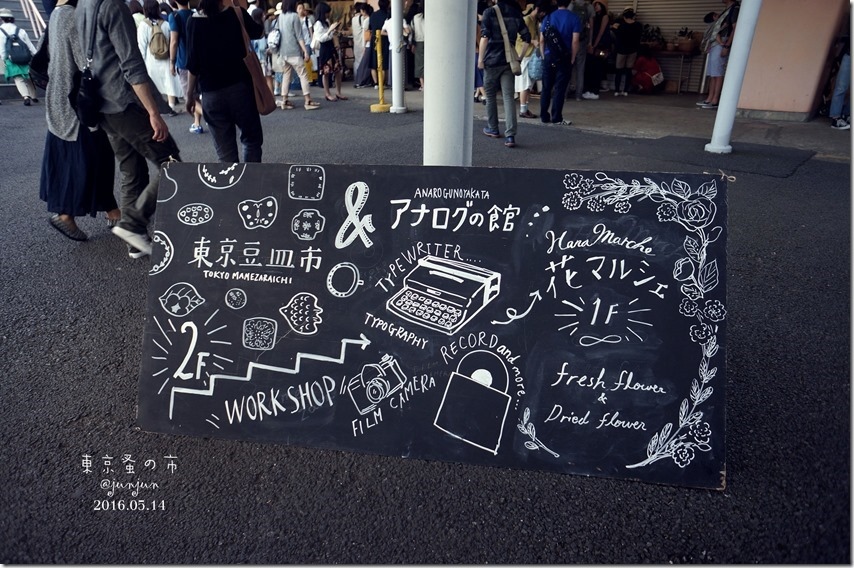 東京豆皿市
TOKYO MAMEZARAICHI
&
ANAROGUNOYAKATA
アナログの館
TYPEWRITER....
TYPOGRAPHY
2F
WORKSHOP
FILM CAMERA
RECORD and more...
Hana Marche
花マルシェ
1F
fresh flower
&
Dried flower
東京蚤の市
@junjun
2016.05.14